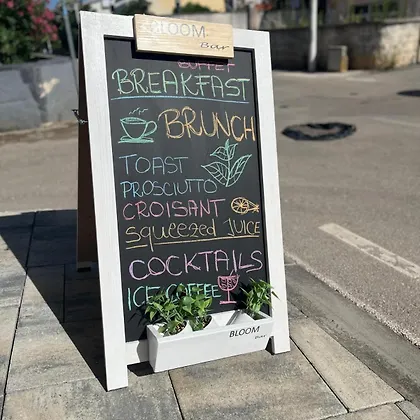 BLOOM
BLOOM
Bar
BUFFET
BREAKFAST
BRUNCH
TOAST
PROSCIUTTO
CROISANT
squeezed JUICE
COCKTAILS
ICE COFFEE
BLOOM
Bar